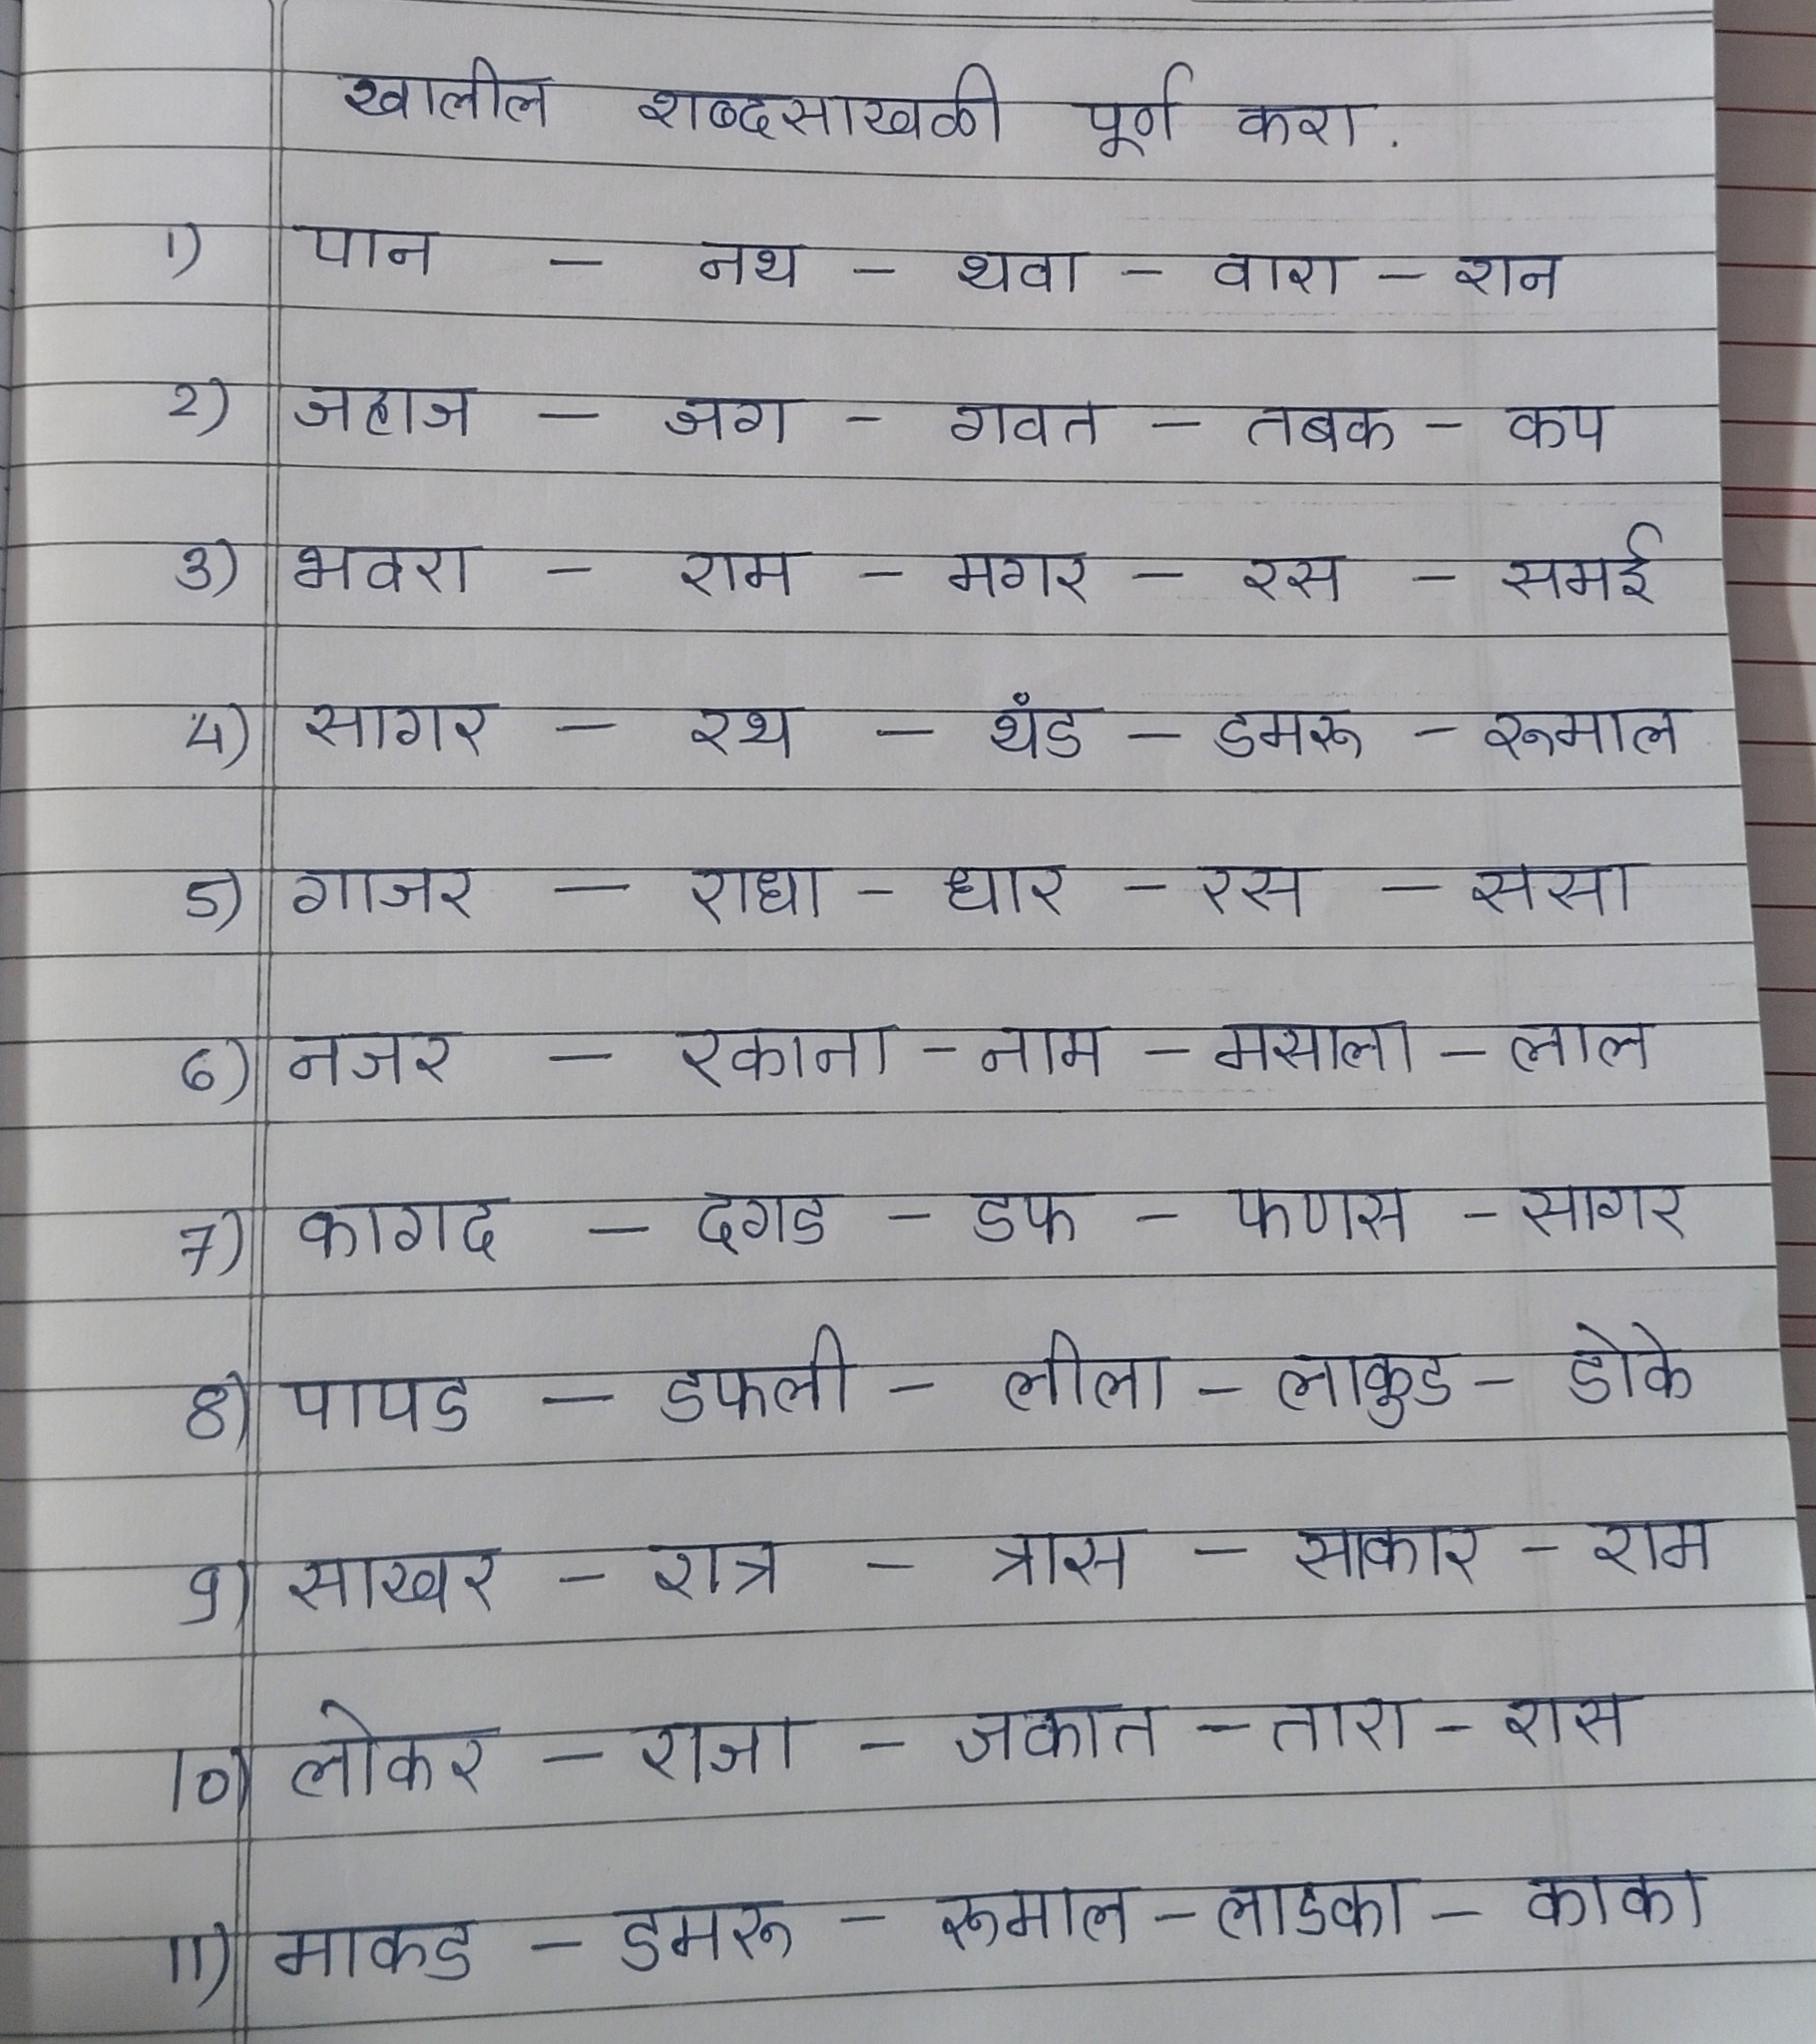 खालील शब्दसाखळी पूर्ण करा.
1) पान - नथ - थवा - वारा - रान
2) जहाज - जग - गवत - तबक - कप
3) भवरा - राम - मगर - रस - समई
4) सागर - रथ - थंड - डमरू - रूमाल
5) गाजर - राधा - धार - रस - ससा
6) नजर - रकाना - नाम - मसाला - लाल
7) कागद - दगड - डफ - फणस - सागर
8) पापड - डफली - लीला - लाकुड - डोके
9) साखर - रात्र - त्रास - साकार - राम
10) लोकर - राजा - जकात - तारा - रास
11) माकड - डमरू - रूमाल - लाडका - काका